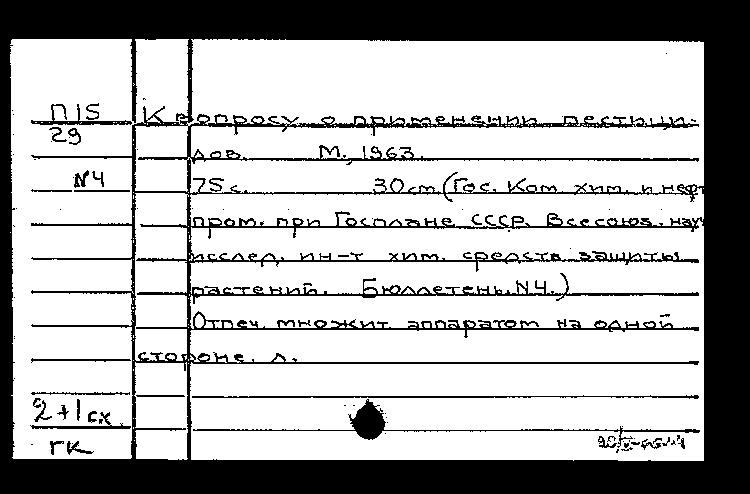 П15 К вопросу о применении пестици-
29
дов. М., 1963.
№4 75 с. 30 см (Гос. Ком. хим. и нефт
пром. при Госплане СССР. Всесоюз. науч
исслед. ин-т хим. средств защиты
растений. Бюллетень №4.)
Отпеч. множит. аппаратом на одной
стороне. л.
2+1 сх
ГК